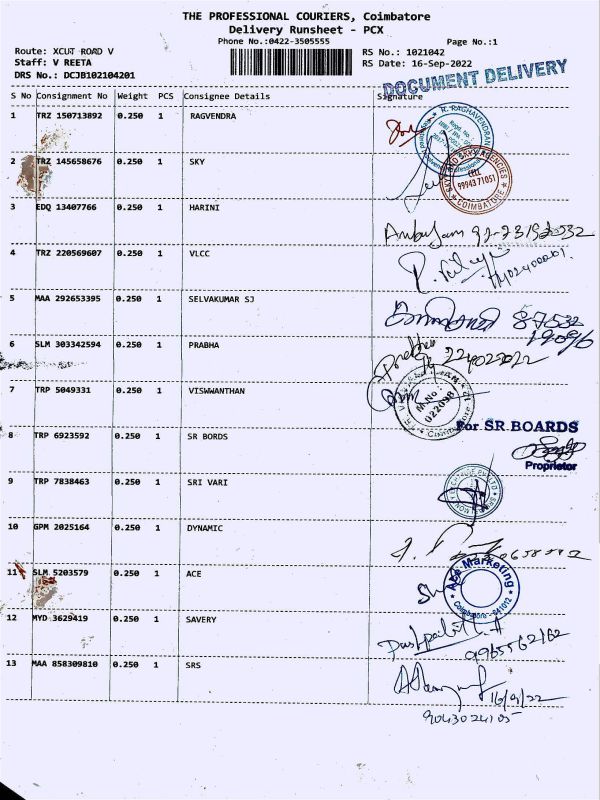 THE PROFESSIONAL COURIERS, Coimbatore
Delivery Runsheet - PCX
Phone No.:0422-3505555
Page No.:1
Route: XCUT ROAD V
RS No.: 1021042
Staff: V REETA
RS Date: 16-Sep-2022
DRS No.: DCJB102104201
DOCUMENT DELIVERY
S No Consignment No Weight PCS Consignee Details Signature
1 TRZ 150713892 0.250 1 RAGVENDRA
R. RAGHAVENDRAN
2 TRZ 145658676 0.250 1 SKY
SKY AGENCIES
CELL
99943 71051
COIMBATORE
3 EDQ 13407766 0.250 1 HARINI
4 TRZ 220569607 0.250 1 VLCC
5 MAA 292653395 0.250 1 SELVAKUMAR SJ
6 SLM 303342594 0.250 1 PRABHA
Prabha
7 TRP 5049331 0.250 1 VISWWANTHAN
M.No
022098
8 TRP 6923592 0.250 1 SR BORDS
For SR. BOARDS
Proprietor
9 TRP 7838463 0.250 1 SRI VARI
10 GPM 2025164 0.250 1 DYNAMIC
11 SLM 5203579 0.250 1 ACE
Ace Marketing
Coimbatore - 641012
12 MYD 3629419 0.250 1 SAVERY
9965562162
13 MAA 858309810 0.250 1 SRS
16/9/22
9043024105